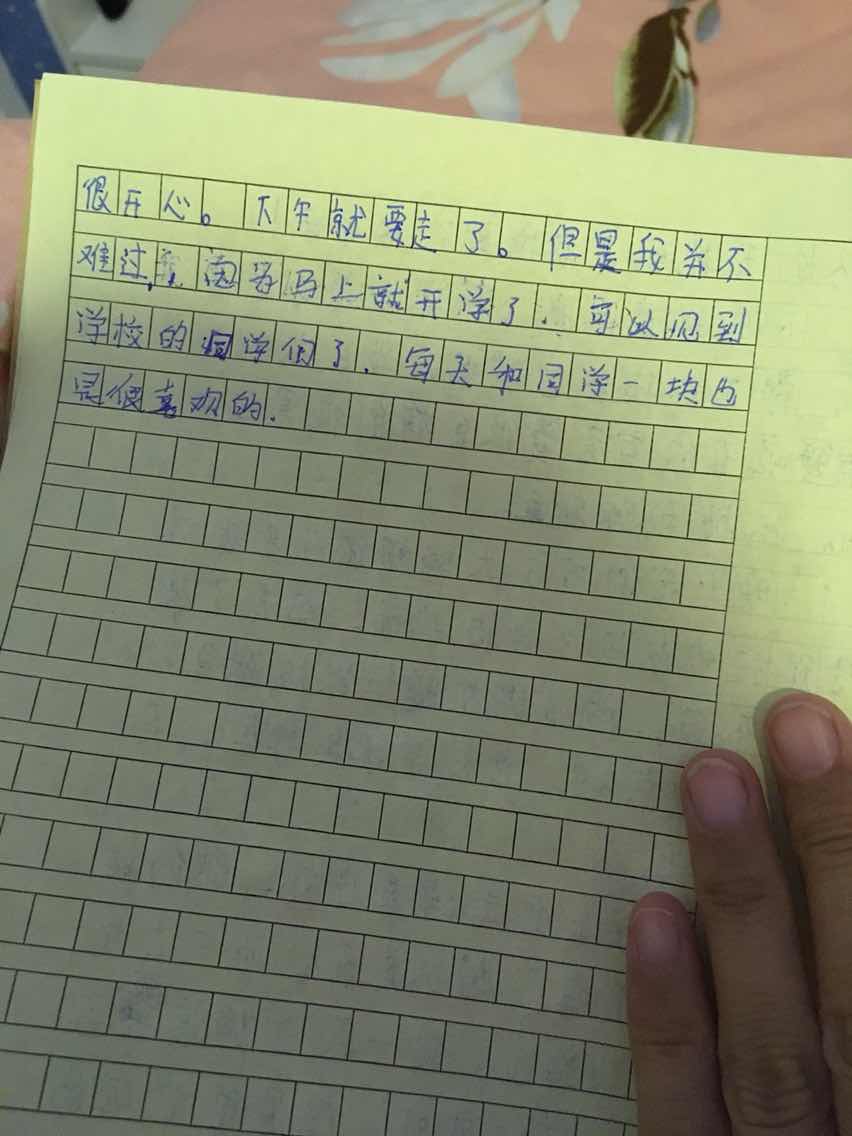 很开心。下午就要走了。但是我并不
难过,因为马上就开学了.可以见到
学校的同学们了.每天和同学一块凸
是很喜欢的.